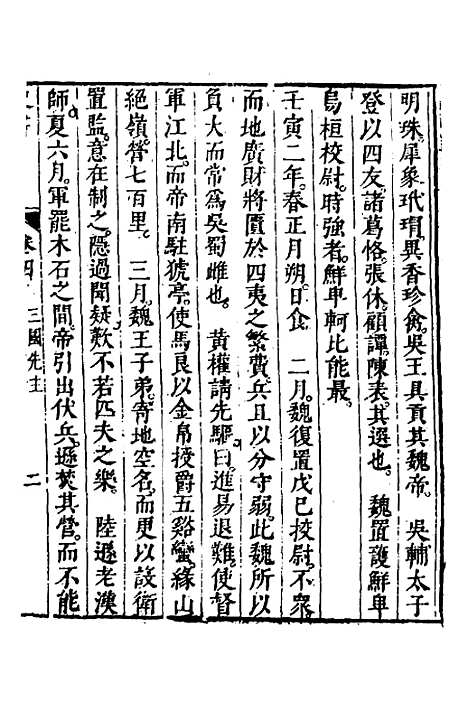 明珠。犀象玳瑁異香珍禽。吳王具貢其魏帝。　吳輔太子
登以四友。諸葛恪。張休。顧譚。陳表其選也。　魏置護鮮卑
烏桓校尉。時強者。鮮卑軻比能最。
壬寅二年。春正月朔。日食　二月。魏復置戊巳校尉。不衆
而地廣財將匱於四夷之繁費。兵且以分守弱。此魏所以
負大而常爲吳蜀雌也。　黄權請先驅曰。進易退難。使督
軍江北。而帝南駐猇亭。使馬良以金帛授爵五谿蠻。緣山
絶嶺營七百里。　三月。魏王子弟。寄地空名。而更以設衛
置監。意在制之。隱過聞疑。歎不若匹夫之樂。　陸遜老漢
師。夏六月。軍罷木石之間。帝引出伏兵。遜焚其營。而不能
卷四
三國先主
二